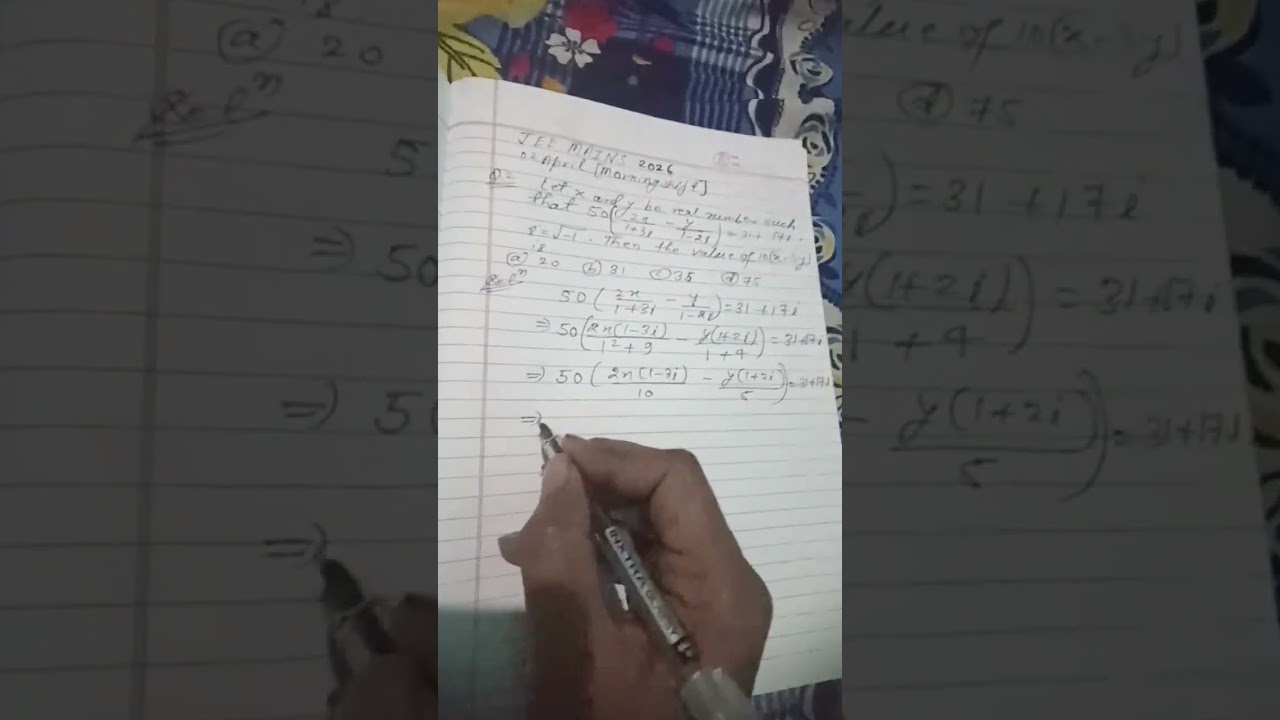 JEE MAINS 2026
02 April [Morning shift]
Q= Let x and y be real number such
that 50(2x/1+3i - y/1-2i) = 31+17i.
i=√-1. Then the value of 10(x- y)
is.
(a) 20 (b) 31 (c) 35 (d) 75
Solⁿ
50(2x/1+3i - y/1-2i) = 31+17i
⇒ 50(2x(1-3i)/1²+9 - y(1+2i)/1+4) = 31+17i
⇒ 50(2x(1-3i)/10 - y(1+2i)/5) = 31+17i
⇒
INXTRA